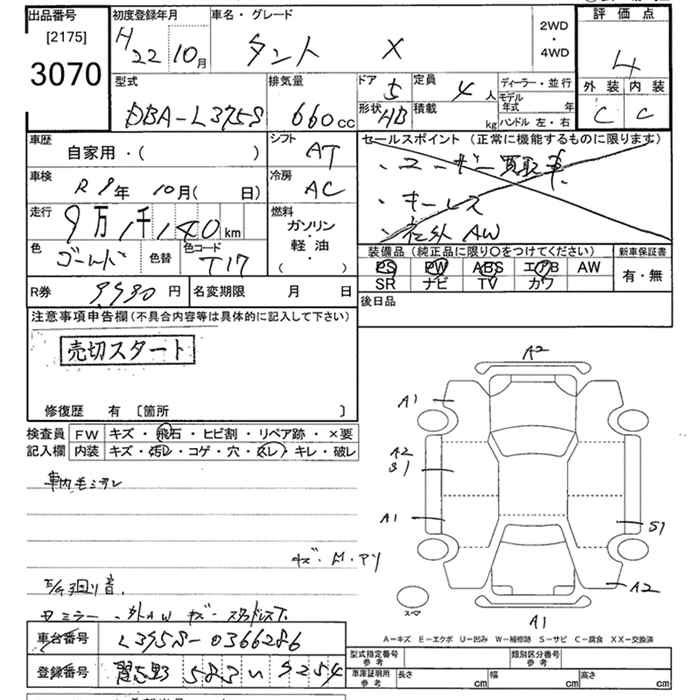 出品番号
[2175]
3070
初度登録年月
H 22 10月
車名・グレード
タント X
2WD
・
4WD
評価点
4
外装 内装
C C
型式
DBA-L375S
排気量
660cc
ドア 5
定員 4人
形状 HB
積載 kg
ディーラー・並行
モデル年式 年
ハンドル 左・右
車歴
自家用・( )
シフト
AT
車検
R 9年 10月( 日)
冷房
AC
走行
9万1千140km
燃料
ガソリン
軽油・
( )
色
ゴールド
色替
色コード
T17
セールスポイント (正常に機能するものに限ります)
・ユーザー買取車
・キーレス
・社外AW
装備品 (純正品に限り○をつけてください)
PS PW ABS エアB AW
SR ナビ TV カワ
新車保証書
有・無
R券
9,930円
名変期限 月 日
後日品
注意事項申告欄(不具合内容等は具体的に記入して下さい)
売切スタート
修復歴 有 〔箇所 〕
検査員
記入欄
FW キズ・飛石・ヒビ割・リペア跡・×要
内装 キズ・汚レ・コゲ・穴・スレ・キレ・破レ
キズ・凹・サビ
外AW キズ・スタッドレス
A2
A1
A2
S1
A1
S1
A2
スペア
A1
A-キズ E-エクボ U-凹み W-補修跡 S-サビ C-腐食 XX-交換済
車台番号
L375S-0366286
登録番号
習志野 583 い 9254
型式指定番号
参考
類別区分番号
参考
車庫証明用
参考
長さ cm
幅 cm
高さ cm